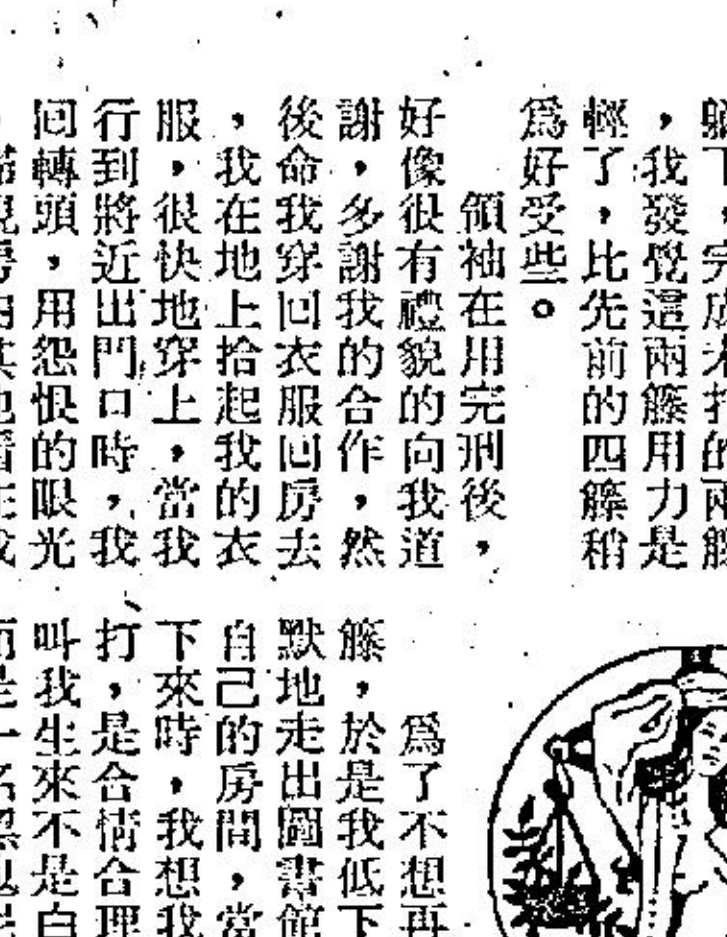 ，我發覺這兩籐用力是
輕了，比先前的四籐稍
爲好受些。
領袖在用完刑後，
好像很有禮貌的向我道
謝，多謝我的合作，然
後命我穿回衣服回房去
，我在地上拾起我的衣
服，很快地穿上，當我
行到將近出門口時，我
回轉頭，用怨恨的眼光
爲了不想再
籐，於是我低下
默地走出圖書館
自己的房間，當
下來時，我想我
打，是合情合理
叫我生來不是白